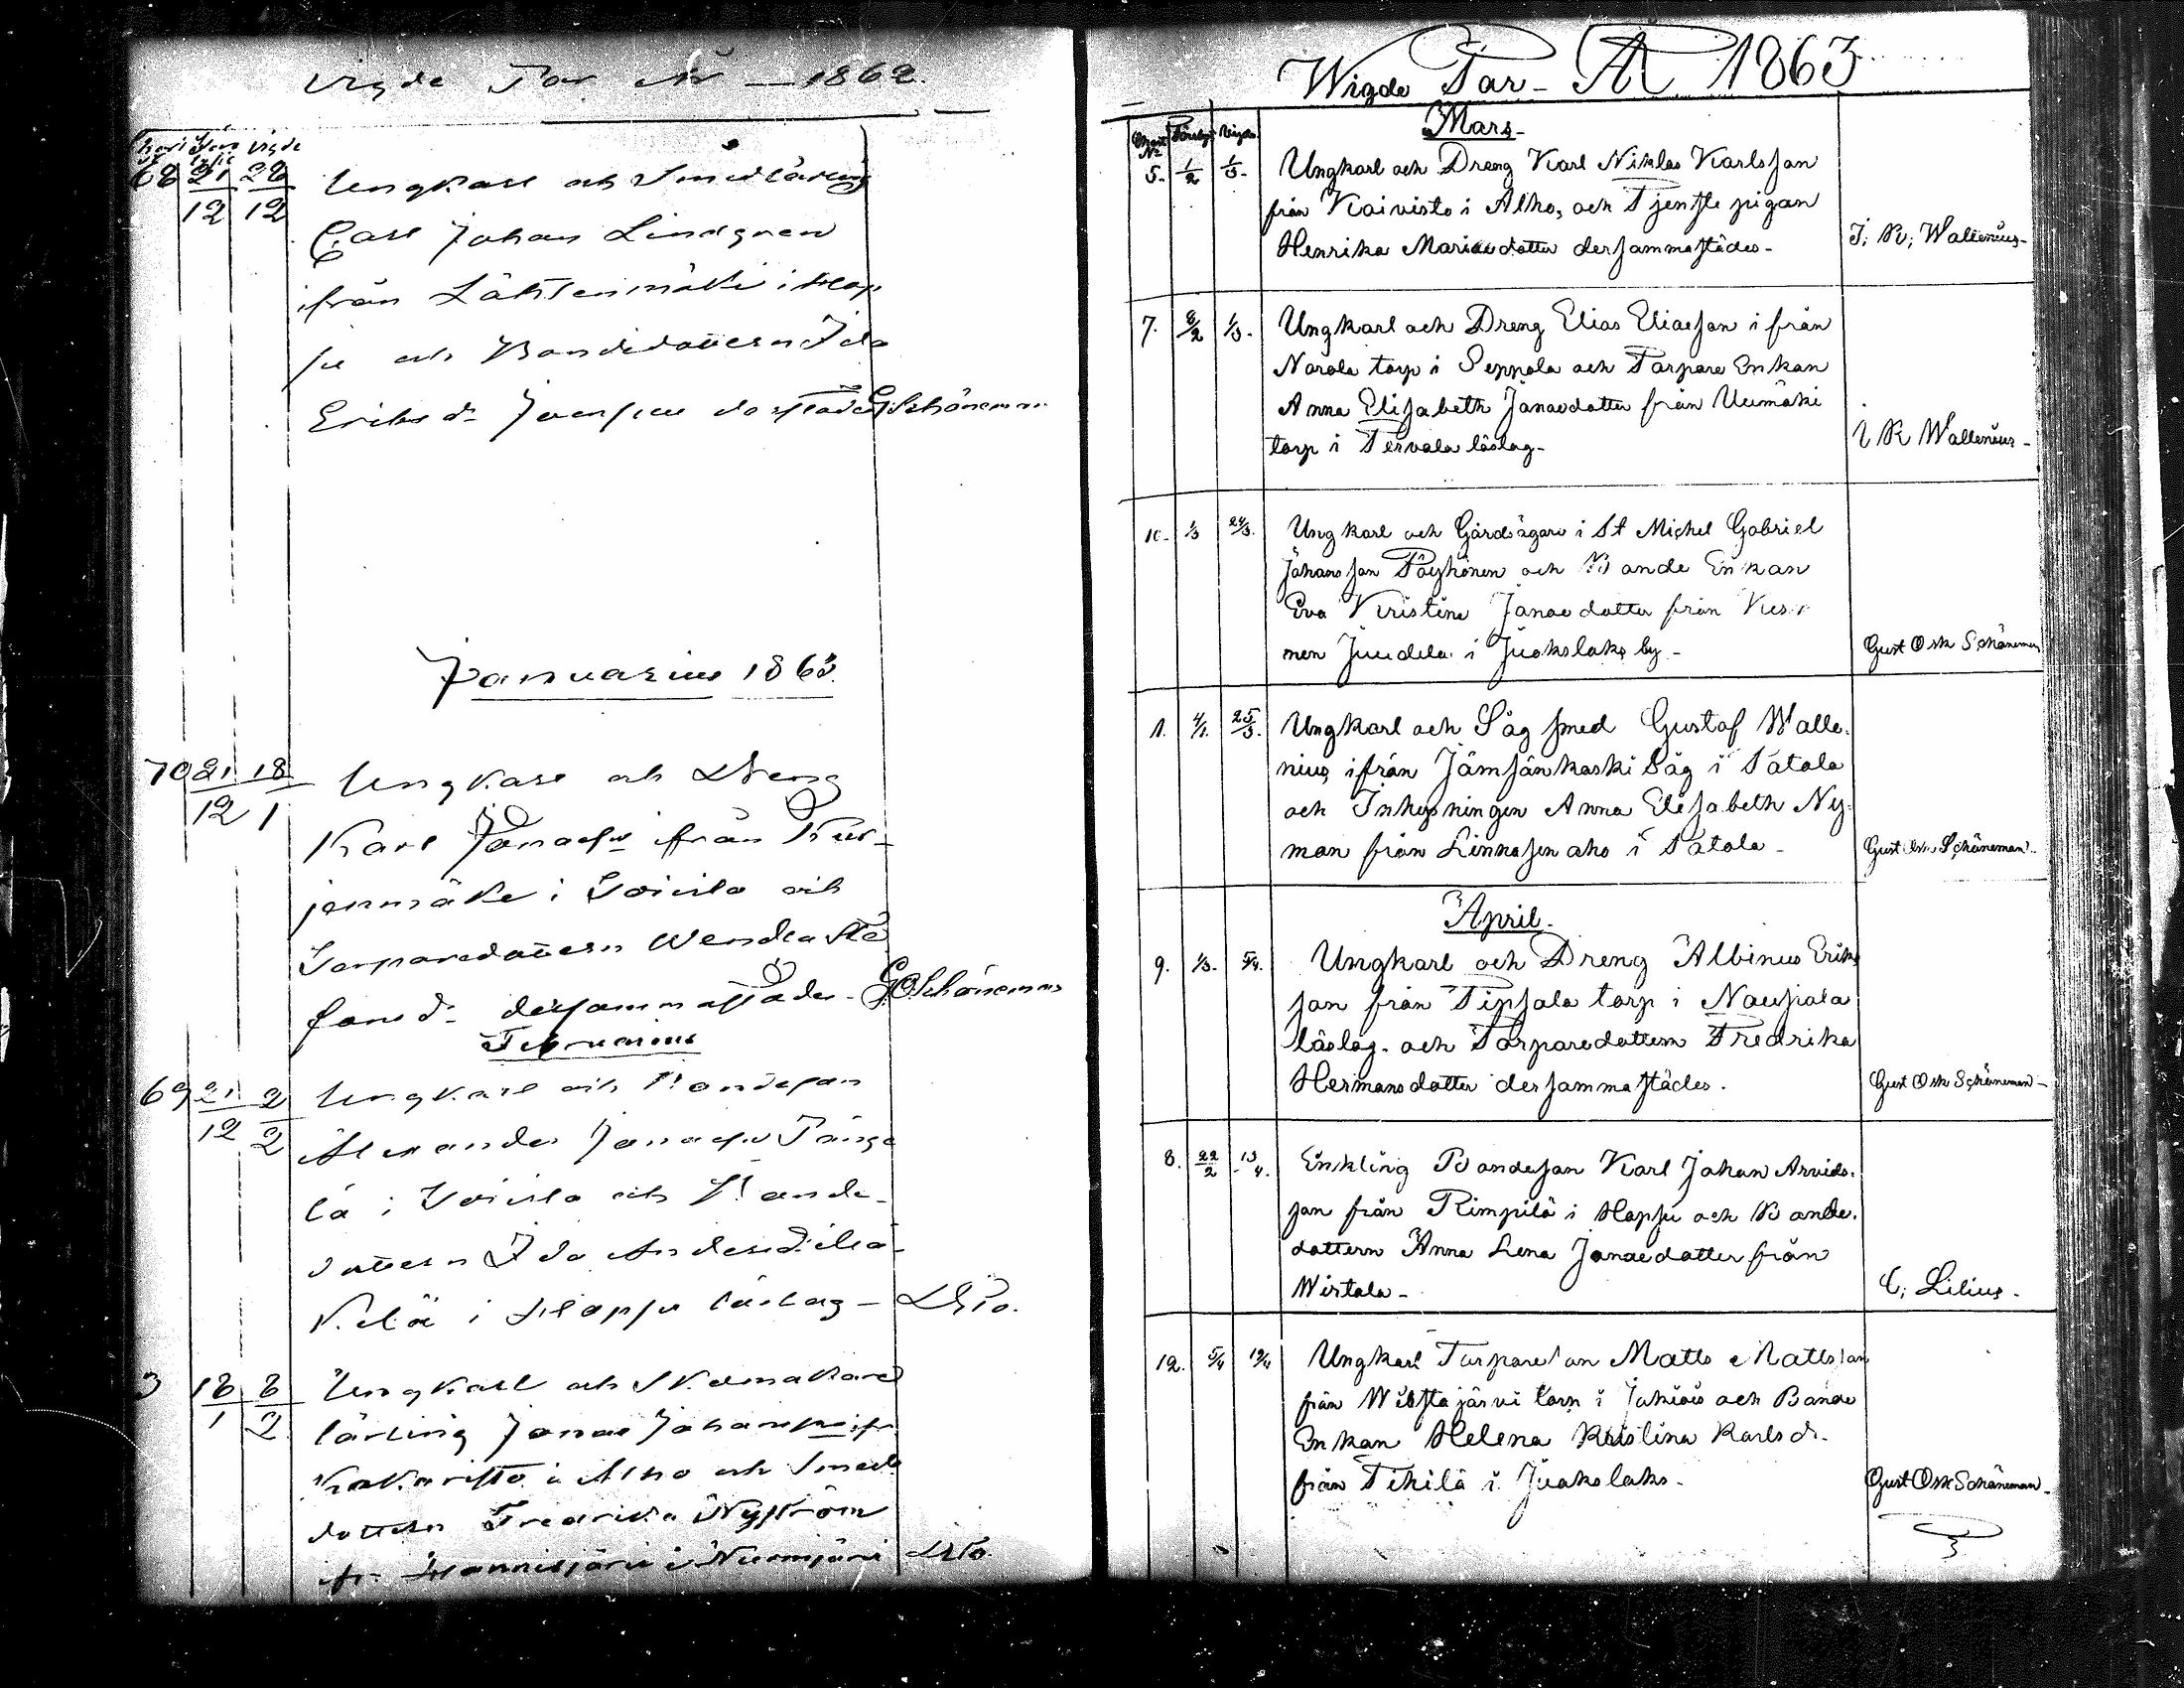 Vigde Par År — 1862.
vigde
68 21/12 28/12 Ungkarl och Smedlärling
Carl Johan Lindgren
ifrån Lähteenmäki i Hap
su och Bondedottern Ida
Eriks d:r
G Schöneman
Januarius 1863.
70 21/12 18/1 Ungkarl och Dreng
Karl Jonasson ifrån Kur-
jenmäki i Loimla och
Torparedottern Wendla Ste
fans d:r dersammastädes - G O Schöneman
Februarius
69 21/12 2/2 Ungkarl och Bondeson
Alexander Jonasson
lä i Loimla och Bonde-
dottern Ida Andersd:r
Kylä i Happsu låslag — Dito.
3 18/1 8/2 Ungkarl och Skomakare
lärling Jonas Johansson ifr
i Alho och Smeds
dottern Fredrika Nyström
ifr. i Nurmijärvi Dito.
Wigde Par - År 1863
Mars
5. 1/2 1/3 - Ungkarl och Dreng Karl Niklas Karlsson
från Koivisto i Alho, och Tjenste pigan
Henrika Mariaedotter dersammastädes - J; R; Wallenius -
7. 8/2 1/3 - Ungkarl och Dreng Elias Eliasson i från
Narola torp i Seppola och Torpare Enkan
Anna Elisabeth Jonaedotter från Uumäki
torp i Tervala låslag - J R Wallenius -
10 - 1/3 24/3. Ungkarl och Gårdsägare i St Michel Gabriel
Johansson Pöyhönen och Bonde Enkan
Eva Kristina Jonaedotter från
nen Juudila i Juokslaks by - Gust Osk Schöneman
1. 4/1. 25/3. Ungkarl och Såg smed Gustaf Walle-
nius ifrån Jämsänkoski Såg i Patala
och Inhysningen Anna Elisabeth Ny-
man från Linnasenaho i Patala - Gust Osk Schöneman
April.
9. 1/3. 5/4. Ungkarl och Dreng Albinus Eriks
son från Tipsala torp i Naupala
låslag. och Torparedottern Fredrika
Hermansdotter dersammastädes. Gust Osk Schöneman -
8. 22/2 13/4. Enkling Bondeson Karl Johan Arvids-
son från Rimpilä i Hopsu och Bonde-
dottern Anna Lena Jonaedotter från
Wistala - C; Lilius.
12. 5/4 19/4 Ungkarl Torpareson Matts Mattsson
från torp i och Bonde
Enkan Helena Kristina Karlsdr.
från Tihilä i Juokslaks - Gust Osk Schöneman -